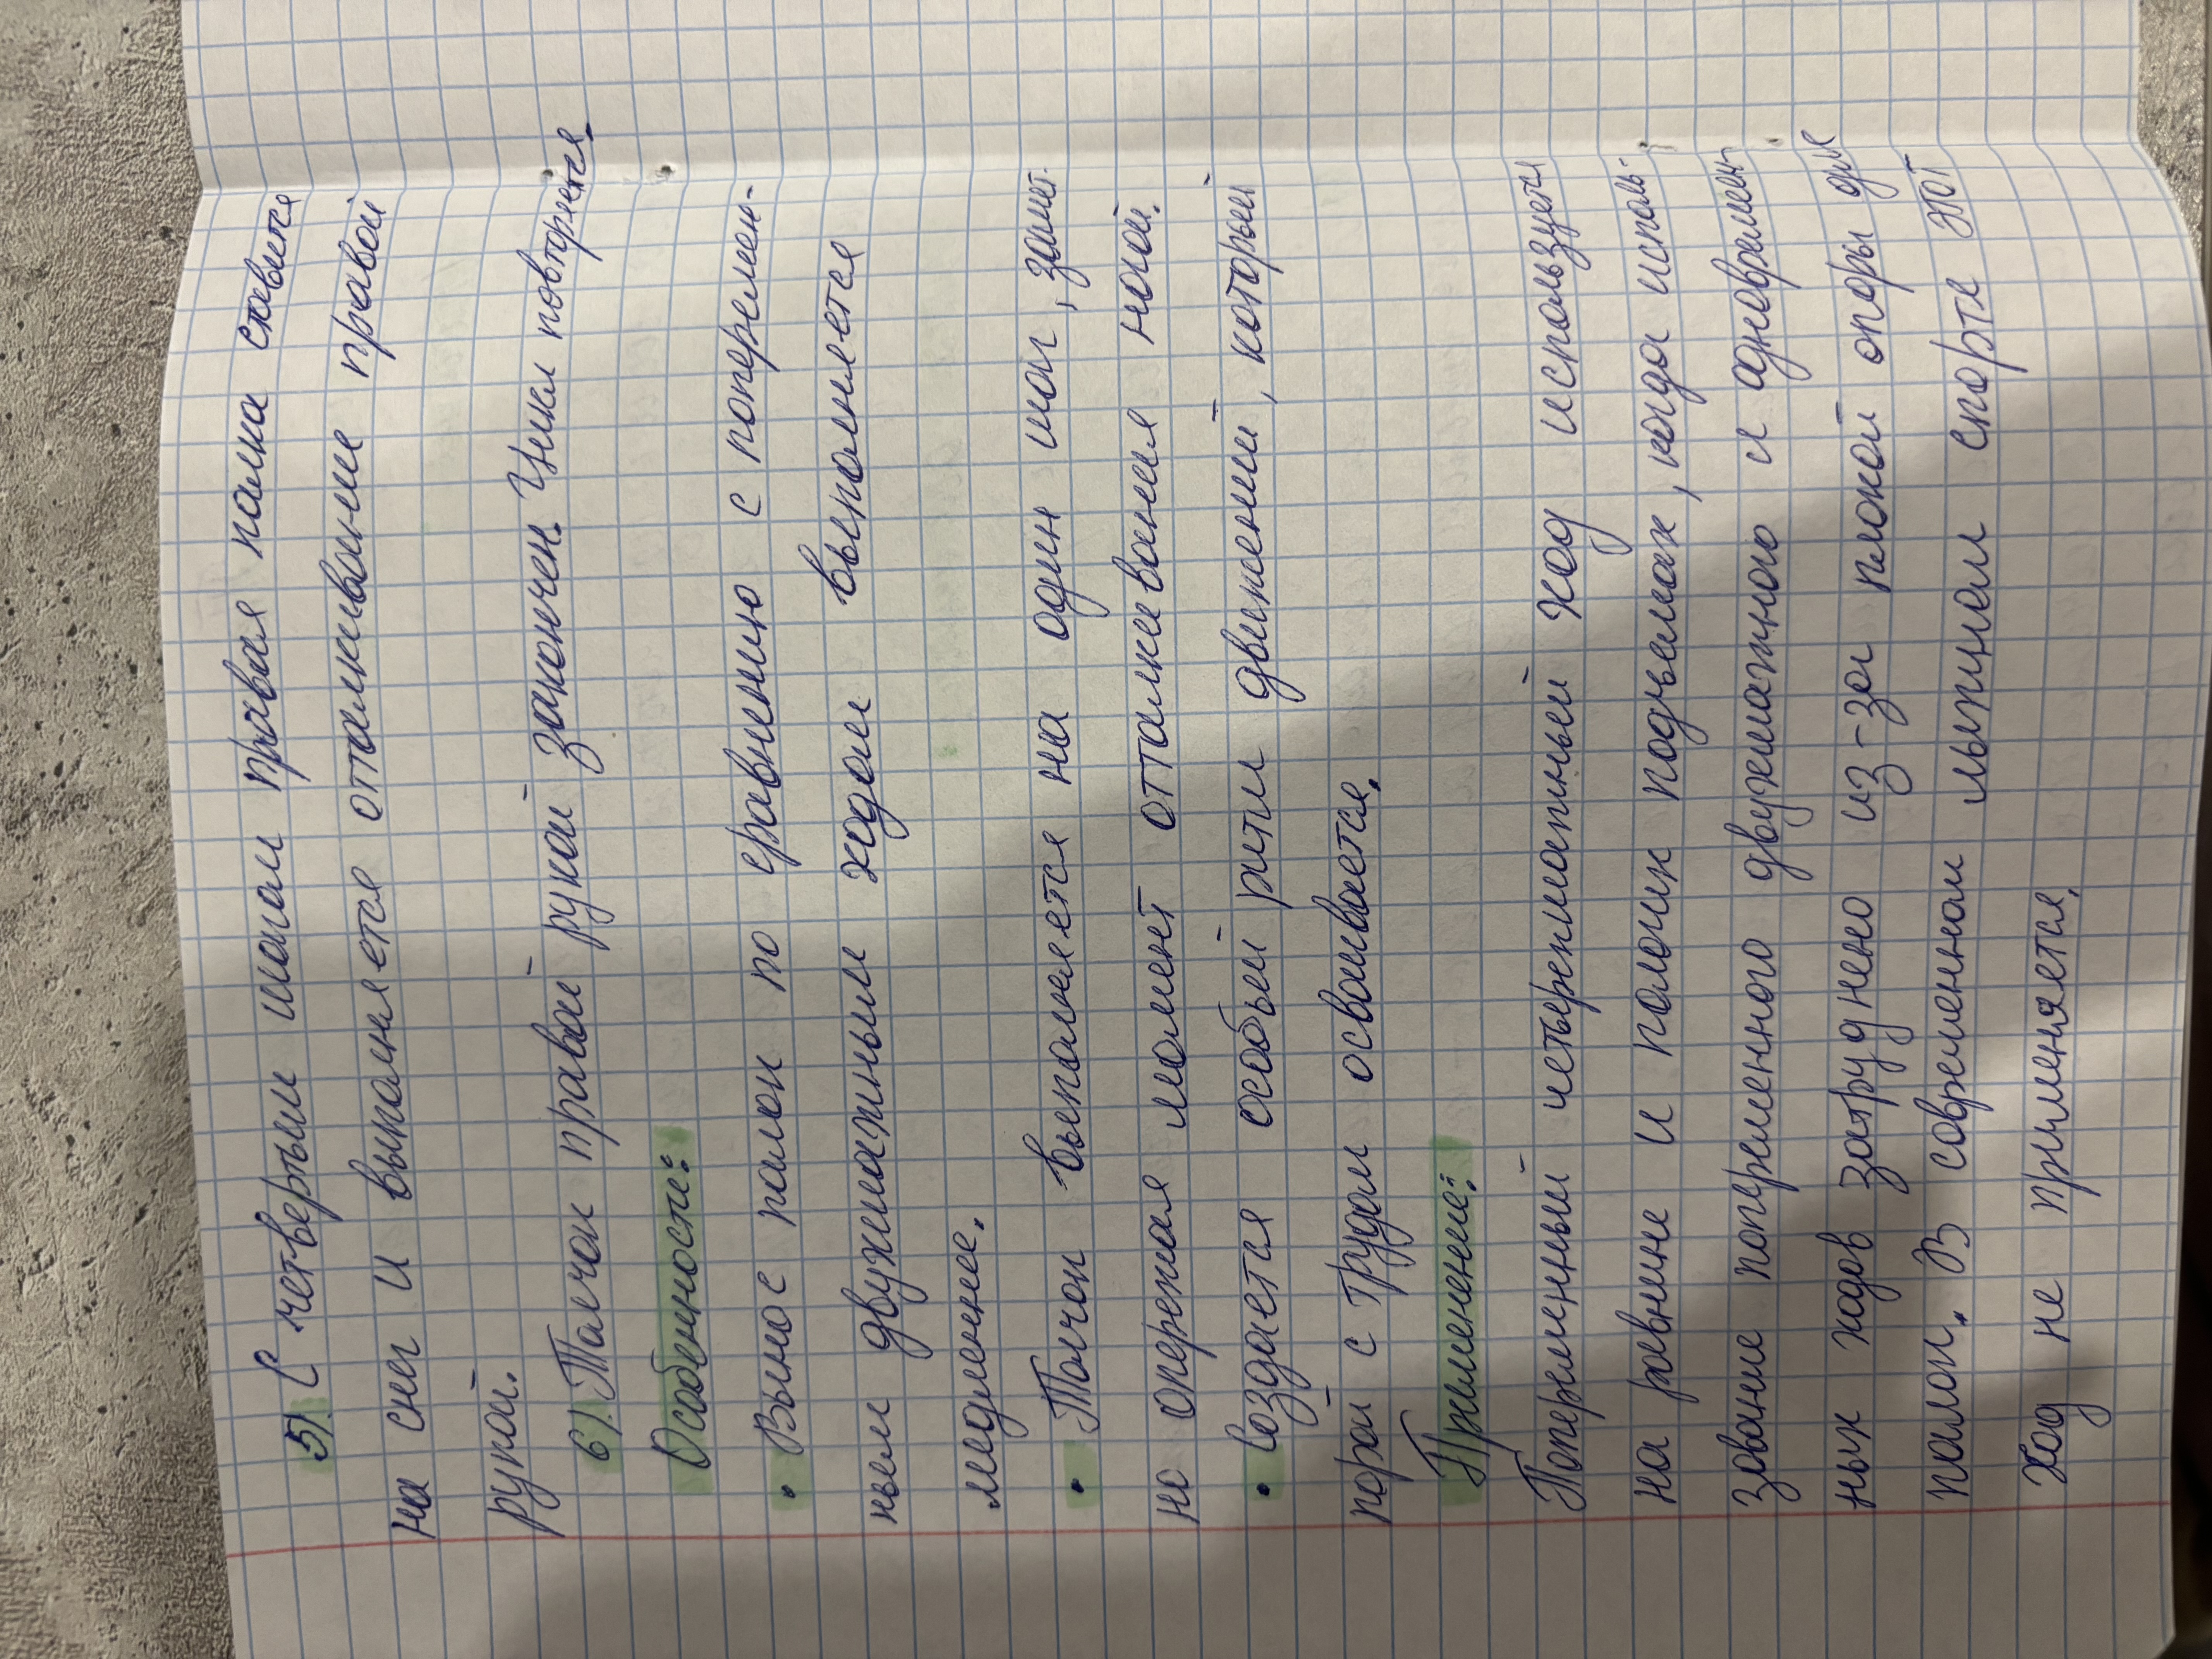 5). С четвертым шагом правая палка ставится
на снег и выполняется отталкивание правой
рукой.
6). Толчок правой рукой закончен. Цикл повторяется.
Особенности:
• Вынос палок по сравнению с поперемен-
ным двухшажным ходом выполняется
медленнее.
• Толчок выполняется на один шаг, замет-
но опережая момент отталкивания ногой.
• Создается особый ритм движений, который
порой с трудом осваивается.
Применение:
Попеременный четырехшажный ход используется
на равнине и пологих подъемах, когда исполь-
зование попеременного двухшажного и одновремен-
ных ходов затруднено из-за плохой опоры для
палок. В современном лыжном спорте этот
ход не применяется.